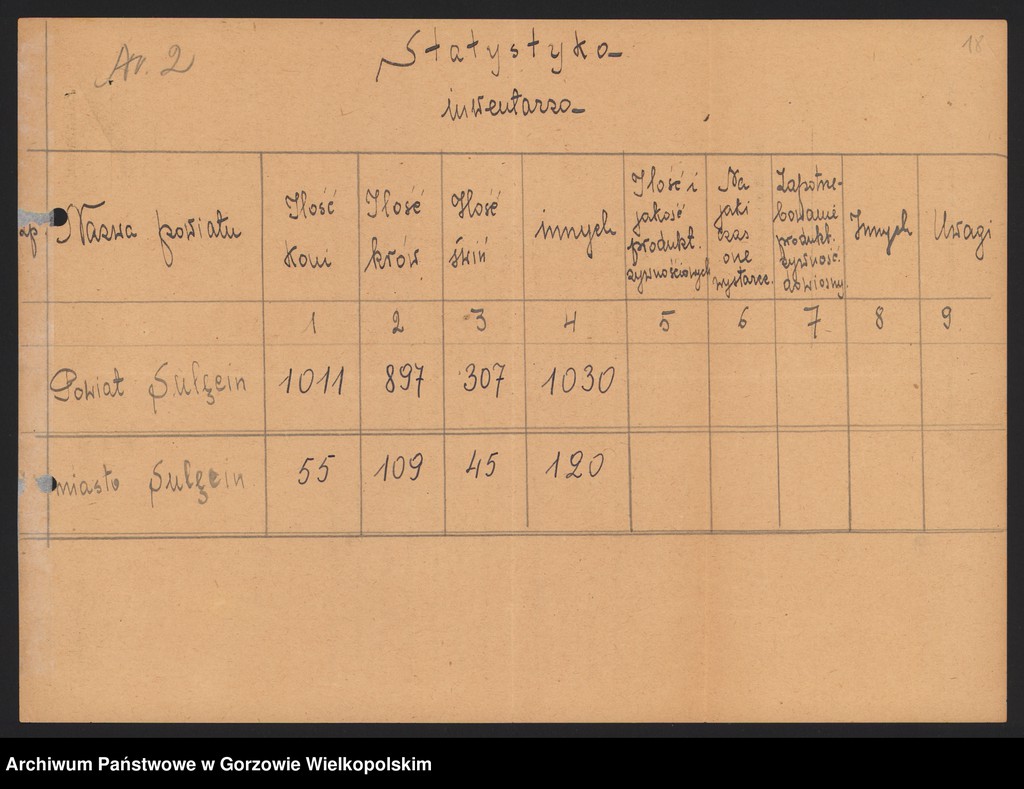 Ar. 2
18
Statystyka
inwentarza
ap. Nazwa powiatu
Ilość Koni
Ilość krów
Ilość świń
innych
Ilość i jakość produkt. żywnościowych
Na jaki czas one wystarcz.
Zapotrzebowanie produkt. żywność. do wiosny
Innych
Uwagi
1 2 3 4 5 6 7 8 9
Powiat Sulęcin 1011 897 307 1030
miasto Sulęcin 55 109 45 120
Archiwum Państwowe w Gorzowie Wielkopolskim